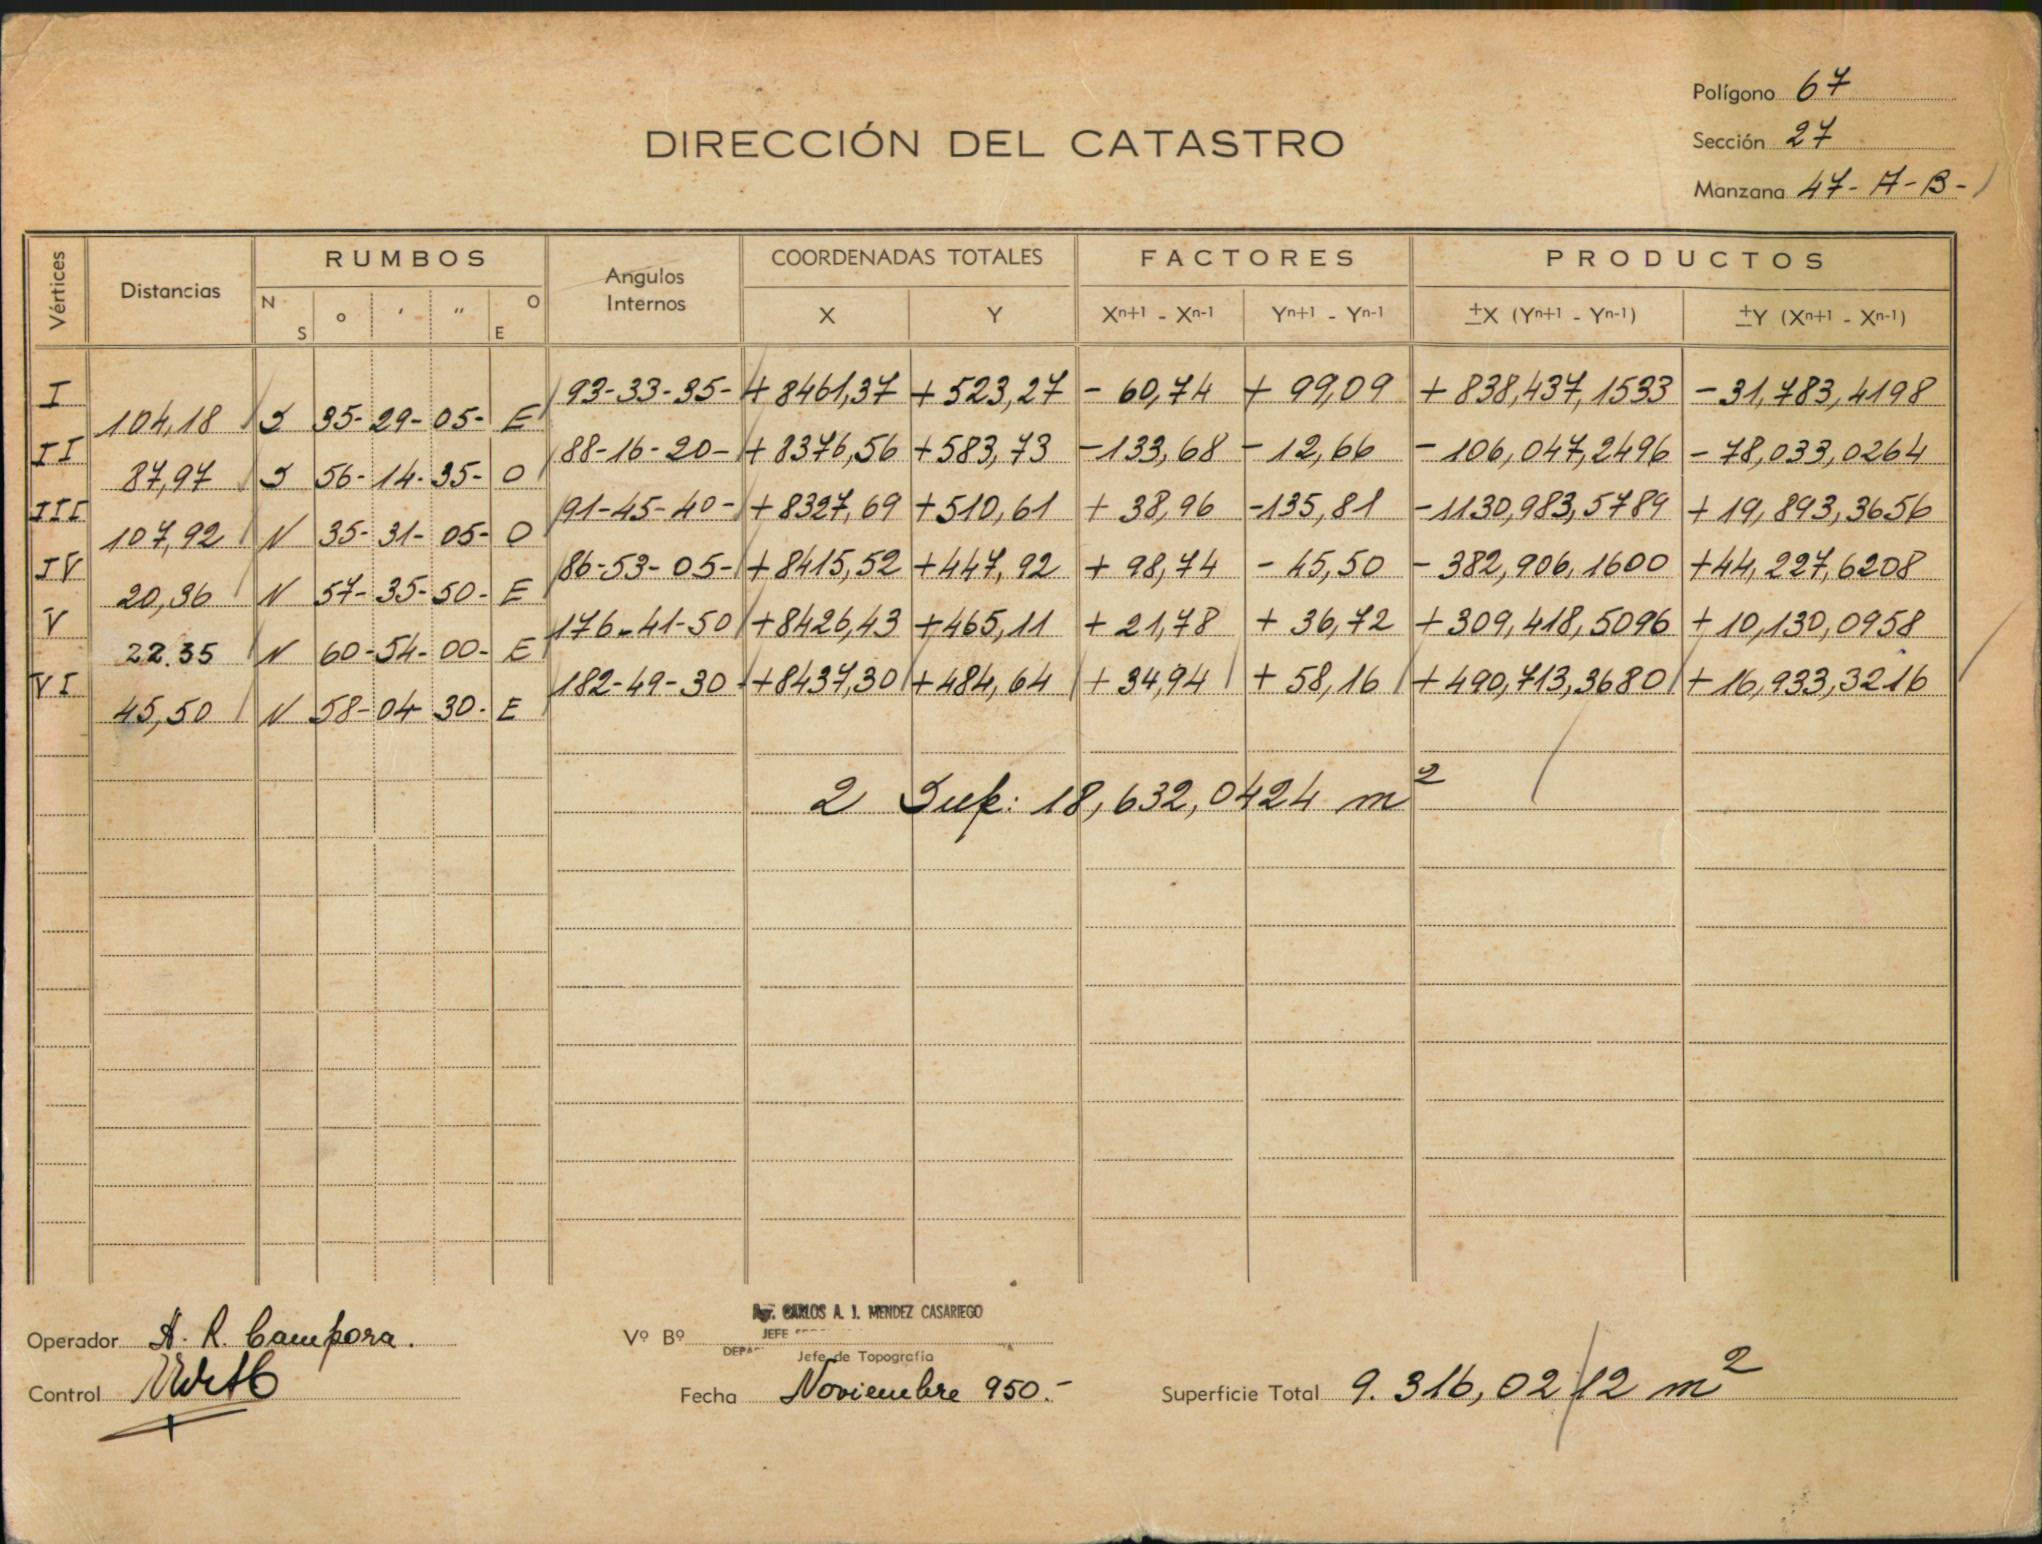 Polígono 67
DIRECCIÓN DEL CATASTRO
Sección 27
Manzana 47- A - B -
Vértices Distancias RUMBOS Angulos Internos COORDENADAS TOTALES FACTORES PRODUCTOS
N S o ' " O E X Y Xn+1 - Xn-1 Yn+1 - Yn-1 ±X (Yn+1 - Yn-1) ±Y (Xn+1 - Xn-1)
I 93-33-35- + 8461,37 + 523,27 - 60,74 + 99,09 + 838,437,1533 - 31,783,4198
104,18 S 35- 29- 05- E
II 88-16-20- + 8376,56 + 583,73 - 133,68 - 12,66 - 106,047,2496 - 78,033,0264
87,97 S 56- 14- 35- O
III 91-45-40- + 8327,69 + 510,61 + 38,96 - 135,81 - 1130,983,5789 + 19,893,3656
107,92 N 35- 31- 05- O
IV 86-53-05- + 8415,52 + 447,92 + 98,74 - 45,50 - 382,906,1600 + 44,227,6208
20,36 N 57- 35- 50- E
V 176-41-50 + 8426,43 + 465,11 + 21,78 + 36,72 + 309,418,5096 + 10,130,0958
22.35 N 60- 54- 00- E
VI 182-49-30 + 8437,30 + 484,64 + 34,94 + 58,16 + 490,713,3680 + 16,933,3216
45,50 N 58- 04 30- E
2 Sup: 18,632,0424 m²
CARLOS A. J. MENDEZ CASARIEGO
Operador A. R. Campora.
Vº Bº JEFE
Jefe de Topografía
Control
Fecha Noviembre 950.-
Superficie Total 9.316,0212 m²